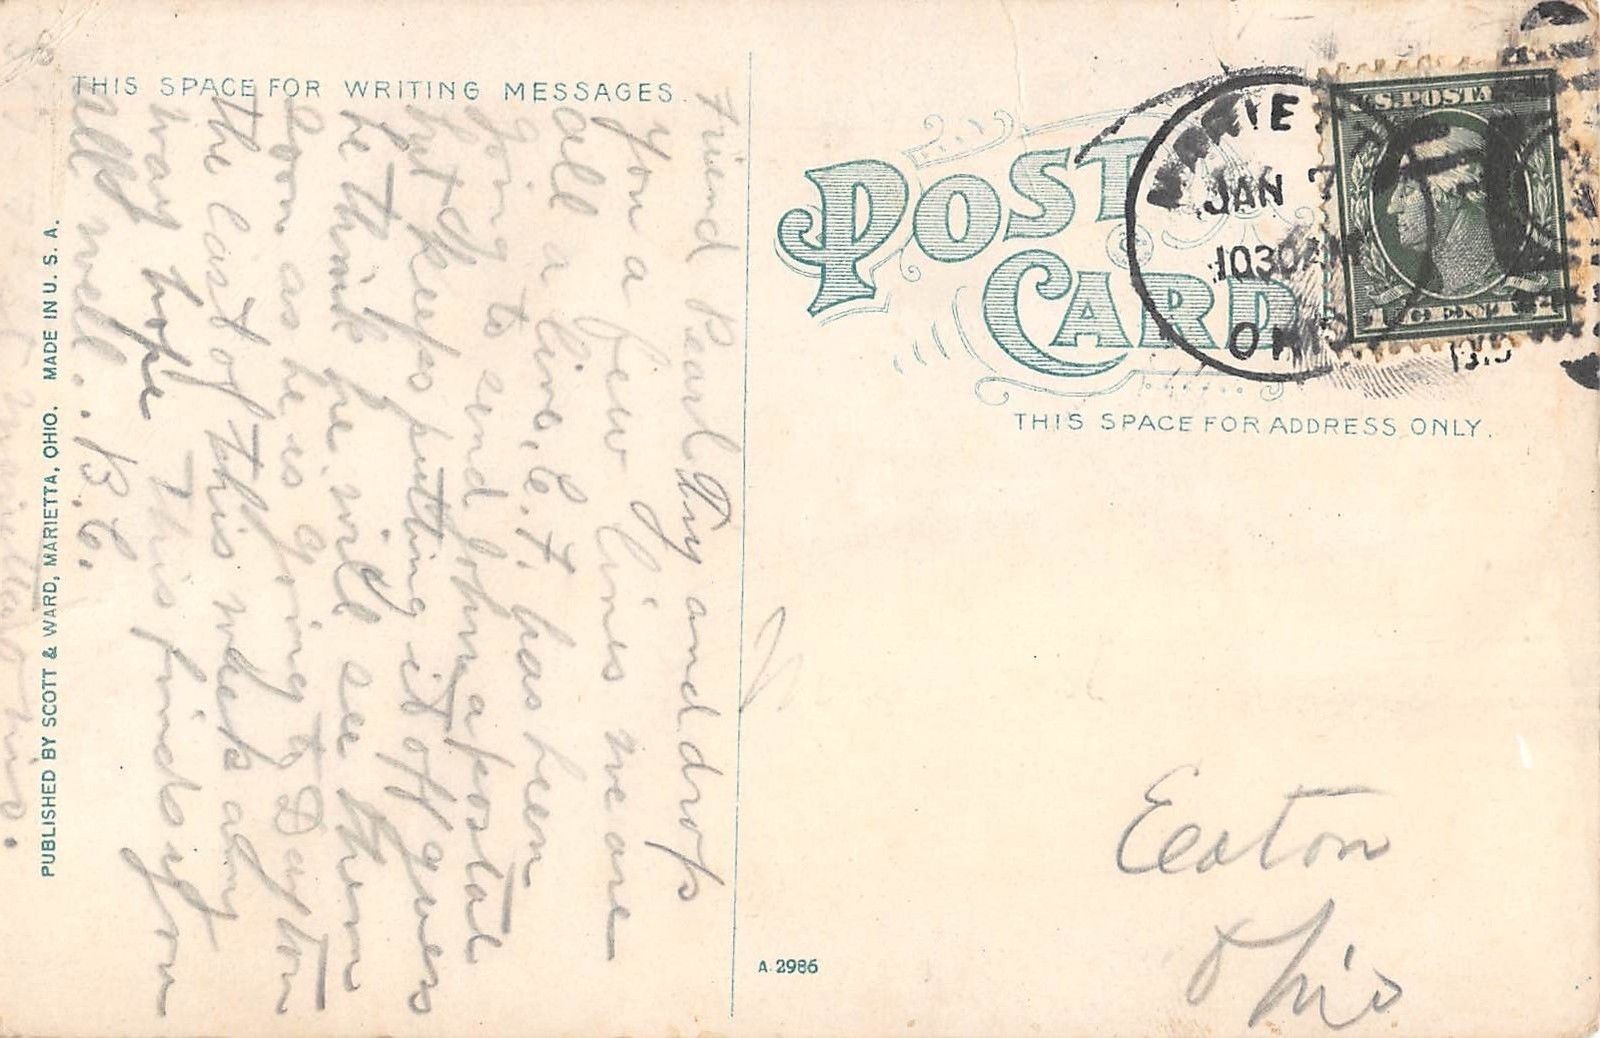 THIS SPACE FOR WRITING MESSAGES.
Friend Pearl Try and drop
you a few lines we are
all a live, E. F. has been
going to send John a postal
but keeps putting it off guess
he think he will see them
soon as he is going to Dayton
the last of this week any
way hope This finds you
all well. B. C.
PUBLISHED BY SCOTT & WARD, MARIETTA, OHIO. MADE IN U. S. A.
POST CARD
JAN 7
1030AM
OHIO
U.S. POSTA
THIS SPACE FOR ADDRESS ONLY.
Eaton
Ohio
A. 2986